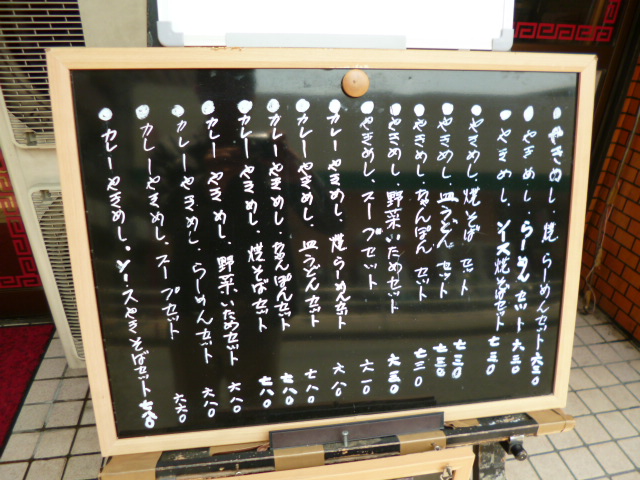 ●やきめし、焼らーめんセット 六三〇
●やきめし、らーめんセット 六三〇
●やきめし、ソース焼そばセット 七三〇
●やきめし、焼そばセット 七三〇
●やきめし、皿うどんセット 七三〇
●やきめし、ちゃんぽんセット 七三〇
●やきめし、野菜いためセット 六三〇
●やきめし、スープセット 六一〇
●カレーやきめし、焼らーめんセット 六八〇
●カレーやきめし、皿うどんセット 七八〇
●カレーやきめし、ちゃんぽんセット 七八〇
●カレーやきめし、焼そばセット 七八〇
●カレーやきめし、野菜いためセット 六八〇
●カレーやきめし、らーめんセット 六八〇
●カレーやきめし、スープセット 六六〇
●カレーやきめし、ソースやきそばセット 七八〇